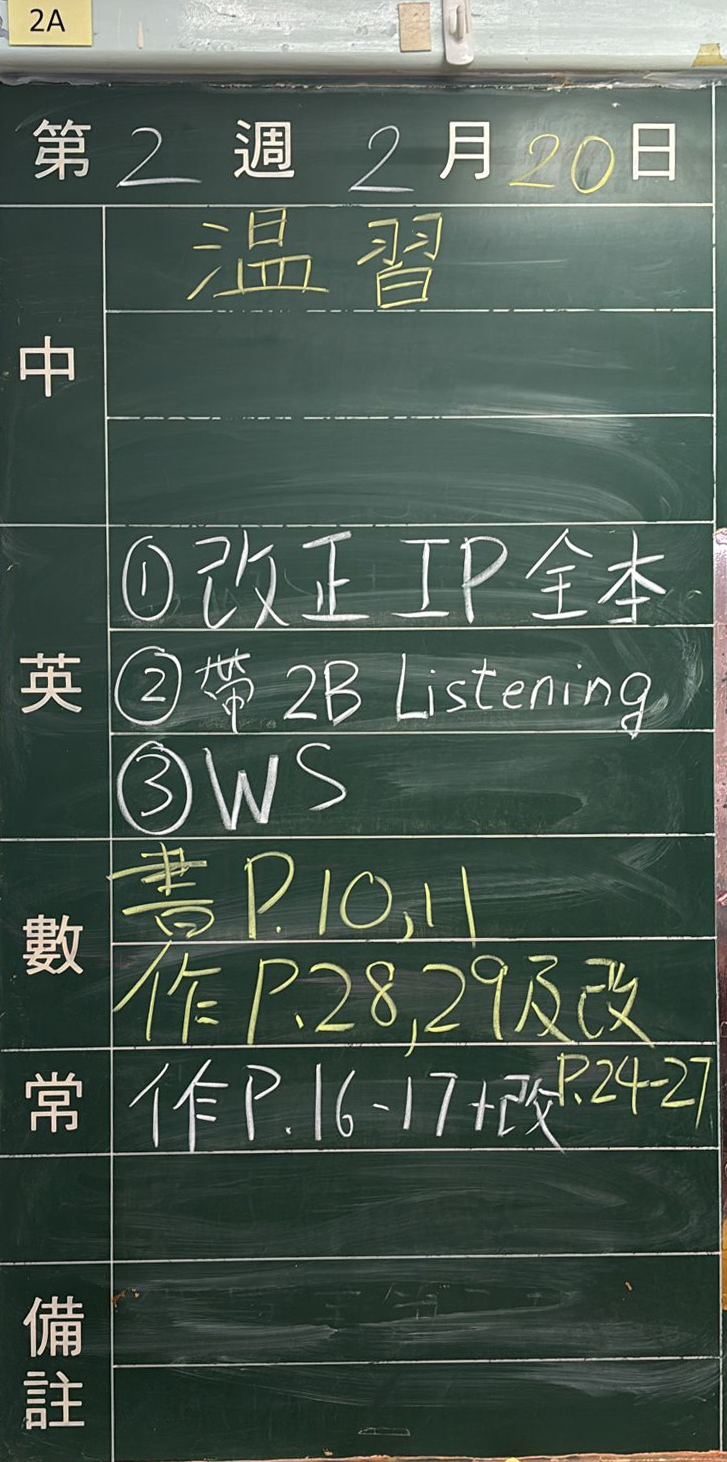 2A
第 2 週 2 月 20 日
中
温習
英
①改正 IP 全本
②帶 2B Listening
③WS
數
書 P.10,11
作 P.28,29及改
常
作 P.16-17+改 P.24-27
備註